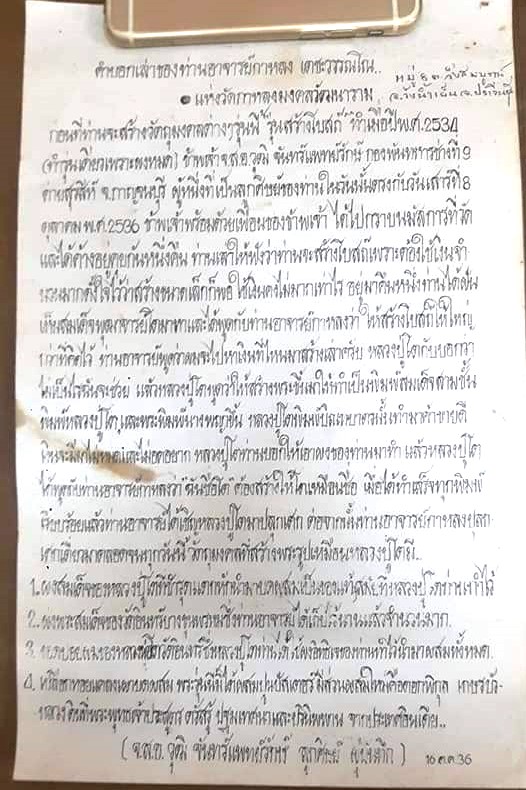 คำบอกเล่าของท่านอาจารย์กาหลง เตชะวรรณโณ..
หมู่ 8 ต.วังสมบูรณ์
อ.วังน้ำเย็น จ.ปราจีนบุรี
แห่งวัดกาหลงมงคลวัฒนาราม
ก่อนที่ท่านจะสร้างวัตถุมงคลต่างๆรุ่นนี้ "รุ่นสร้างโบสถ์" ทำเมื่อปีพ.ศ.2534
(ทำรุ่นเดียวเพราะผงหมด) ข้าพเจ้า จ.ส.อ.วุฒิ จันทร์แพทย์รักษ์ กองพันทหารช่างที่ 9
ค่ายสุรสีห์ จ.กาญจนบุรี ผู้หนึ่งที่เป็นลูกศิษย์ของท่านในวันนั้นตรงกับวันเสาร์ที่ 8
ตุลาคม พ.ศ. 2536 ข้าพเจ้าพร้อมด้วยเพื่อนของข้าพเจ้า ได้ไปกราบนมัสการที่วัด
และได้ค้างอยู่คุยกันหนึ่งคืน ท่านเล่าให้ฟังว่าท่านจะสร้างโบสถ์เพราะต้องใช้เงินจำ
นวนมากตั้งใจไว้ว่าสร้างขนาดเล็กก็พอใช้เงินคงไม่มากเท่าไร อยู่มาคืนหนึ่งท่านได้ฝัน
เห็นสมเด็จพุฒาจารย์โตมาหาและได้พูดกับท่านอาจารย์กาหลงว่า ให้สร้างโบสถ์ให้ใหญ่
กว่าที่คิดไว้ ท่านอาจารย์พูดว่าผมจะไปหาเงินที่ไหนมาสร้างเล่าครับ หลวงปู่โตกับบอกว่า
ไม่เป็นไรฉันจะช่วย แล้วหลวงปู่โตพูดว่าให้สร้างพระขึ้นมาให้ทำเป็นพิมพ์สมเด็จสามชั้น
พิมพ์หลวงปู่โต,และพระพิมพ์นางพญาขึ้น หลวงปู่โตพิมพ์ปิลันทน์ทำมาค้าขายดี
เงินจะมีมาไม่หมดและไม่อดอยาก หลวงปู่โตท่านบอกให้เอาผงของท่านมาทำ แล้วหลวงปู่โต
ได้พูดกับท่านอาจารย์กาหลงว่า ฉันชื่อโต ต้องสร้างให้โตเหมือนชื่อ เมื่อได้ทำเสร็จทุกพิมพ์
เรียบร้อยแล้วท่านอาจารย์ได้เชิญหลวงปู่โตมาปลุกเศก ต่อจากนั้นท่านอาจารย์กาหลงปลุก
เศกเดี่ยวมาตลอดจนทุกวันนี้ วัตถุมงคลที่สร้างพระรูปเหมือนหลวงปู่โตมี..
1. ผงสมเด็จของหลวงปู่โตที่ชำรุดแตกหักนำมาบดผสมเป็นของแท้ หลวงปู่โตท่านทำไว้
2. ผงพระสมเด็จของวัดอินทร์บางขุนพรหมซึ่งท่านอาจารย์ได้เก็บไว้นานแล้วจำนวนมาก.
3. หลวงปู่โตวัดอินทร์ซึ่งหลวงปู่โตท่านได้ให้ผงอิทธิเจของท่านที่ไว้นำมาผสมทั้งหมด.
4. พระรุ่นนี้ได้ผสมปูนปลาสเตอร์ มีส่วนผสมใหม่คือดอกพิกุล เกษรบัว
หลวง ดินที่พระพุทธเจ้าประสูตร ตรัสรู้ ปฐมเทศนาและปรินิพพาน จากประเทศอินเดีย..
( จ.ส.อ. วุฒิ จันทร์แพทย์รักษ์ ลูกศิษย์ ผู้บันทึก ) 16 ต.ค. 36